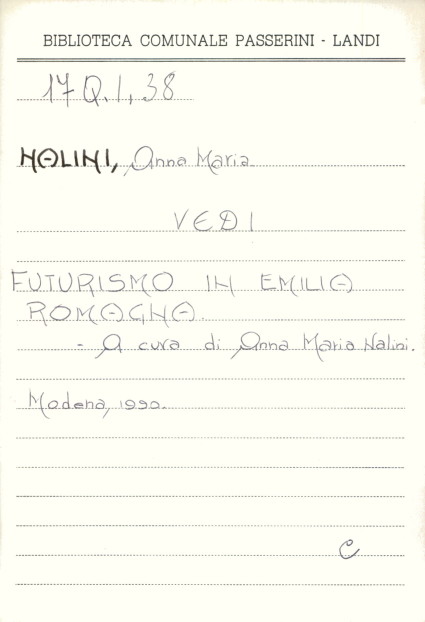 BIBLIOTECA COMUNALE PASSERINI - LANDI
17 Q.I, 38
NALINI, Anna Maria
VEDI
FUTURISMO IN EMILIA
ROMAGNA.
- A cura di Anna Maria Nalini.
Modena, 1990.
C